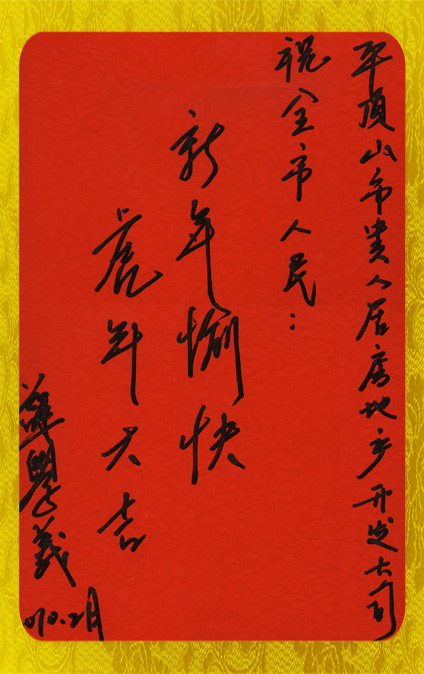 平顶山市贵人居房地产开发公司
祝全市人民：
新年愉快
虎年大吉
薛學義
010.2月